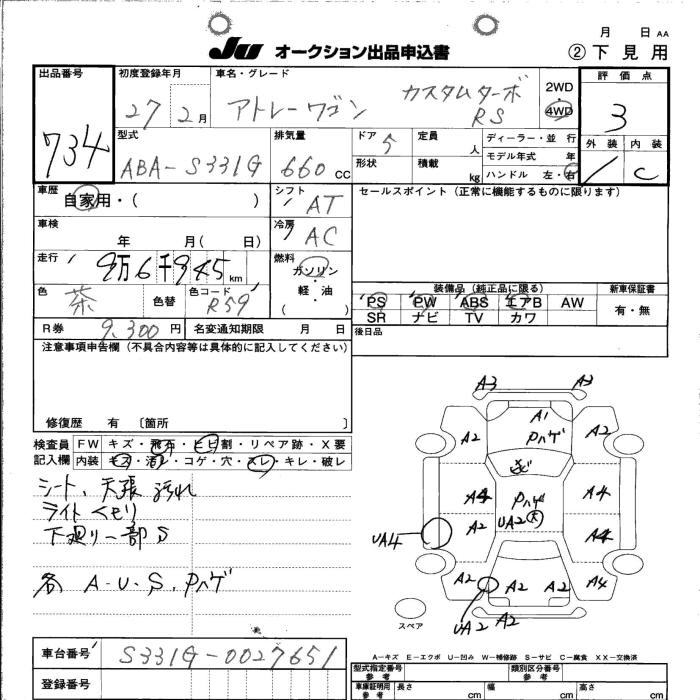 月 日 AA
JU オークション出品申込書 ②下見用
出品番号 734
初度登録年月 27 2月
車名・グレード アトレーワゴン カスタムターボ RS
2WD 4WD
評価点 3
外装 内装 C
型式 ABA-S331G
排気量 660 CC
ドア 5 定員 人
形状 積載 kg
ディーラー・並行
モデル年式 年
ハンドル 左・右
車歴 自家用・( )
シフト AT
セールスポイント (正常に機能するものに限ります)
車検 年 月( 日)
冷房 AC
走行 9万6千945km
燃料 ガソリン・軽・油 ( )
色 茶 色替 色コード R59
装備品 (純正品に限る) 新車保証書
PS PW ABS エアB AW 有・無
SR ナビ TV カワ
R券 9,300円 名変通知期限 月 日
後日品
注意事項申告欄 (不具合内容等は具体的に記入してください)
修復歴 有 〔箇所 〕
検査員記入欄
FW キズ・飛石・ヒビ割・リペア跡・X要
内装 キズ・汚レ・コゲ・穴・スレ・キレ・破レ
シート、天張 汚れ
ライトくもり
下廻り一部S
各 A・U・S・Pハゲ
A3 A3
A1
A2 Pハゲ A2
A4 Pハゲ A4
A2 UA2 A4
UA4
A2 A2 A2 A4
UA2 A2
スペア
車台番号 S331G-0027651
登録番号
A-キズ E-エクボ U-凹み W-補修跡 S-サビ C-腐食 XX-交換済
型式指定番号 参考 類別区分番号 参考
車庫証明用 参考 長さ cm 幅 cm 高さ cm